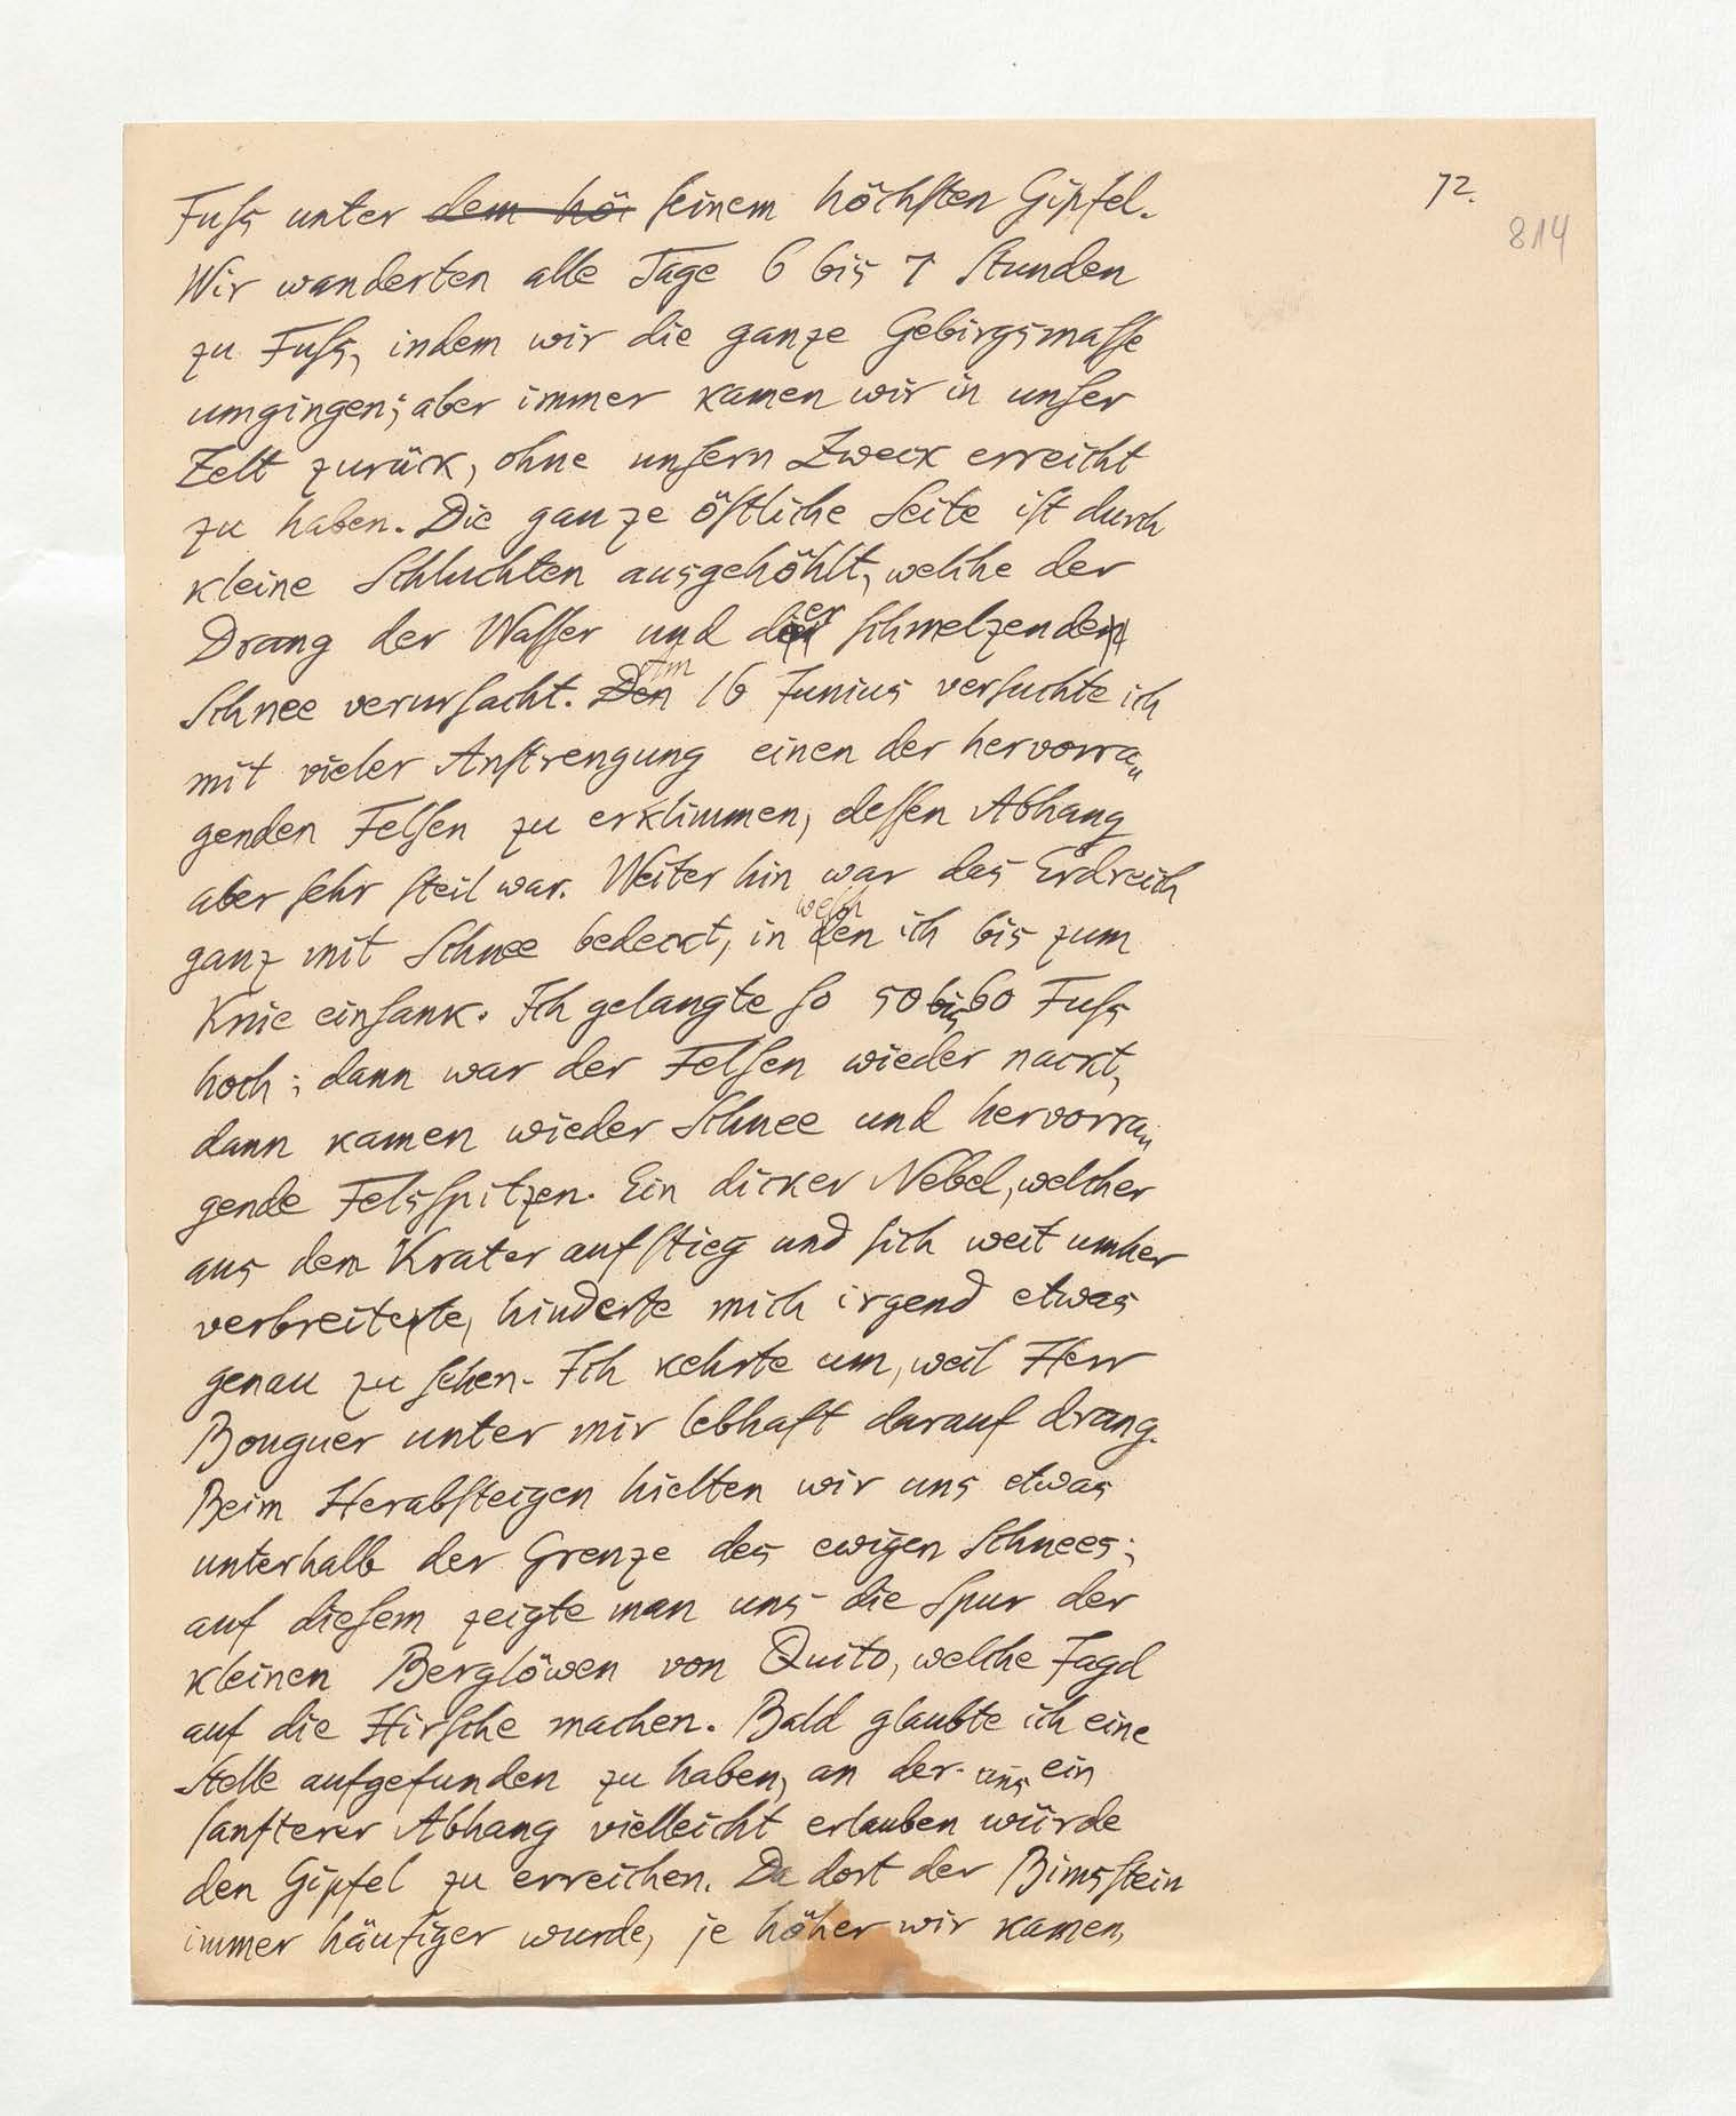 72.
814
Fuſs unter dem hö ſeinem höchſten Gipfel.
Wir wanderten alle Tage 6 bis 7 Stunden
zu Fuſs, indem wir die ganze Gebirgsmaſſe
umgingen; aber immer kamen wir in unſer
Zelt zurück, ohne unſern Zweck erreicht
zu haben. Die ganze öſtliche Seite iſt durch
kleine Schluchten ausgehöhlt, welche der
Drang der Waſſer und der ſchmelzende
Schnee verurſacht. Den Am 16 Junius verſuchte ich
mit vieler Anſtrengung einen der hervorra„
genden Felſen zu erklimmen, deſſen Abhang
aber ſehr ſteil war. Weiter hin war das Erdreich
ganz mit Schnee bedeckt, in welchen ich bis zum
Knie einſank. Ich gelangte ſo 50 bis 60 Fuſs
hoch; dann war der Felſen wieder nackt,
dann kamen wieder Schnee und hervorra„
gende Felsſpitzen. Ein dicker Nebel, welcher
aus dem Krater aufſtieg und ſich weit umher
verbreitete, hinderte mich irgend etwas
genau zu ſehen. Ich kehrte um, weil Herr
Bouguer unter mir lebhaft darauf drang.
Beim Herabſteigen hielten wir uns etwas
unterhalb der Grenze des ewigen Schnees;
auf dieſem zeigte man uns die Spur der
kleinen Berglöwen von Quito, welche Jagd
auf die Hirſche machen. Bald glaubte ich eine
Stelle aufgefunden zu haben, an der uns ein
ſanfterer Abhang vielleicht erlauben würde
den Gipfel zu erreichen. Da dort der Bimsſtein
immer häufiger wurde, je höher wir kamen,